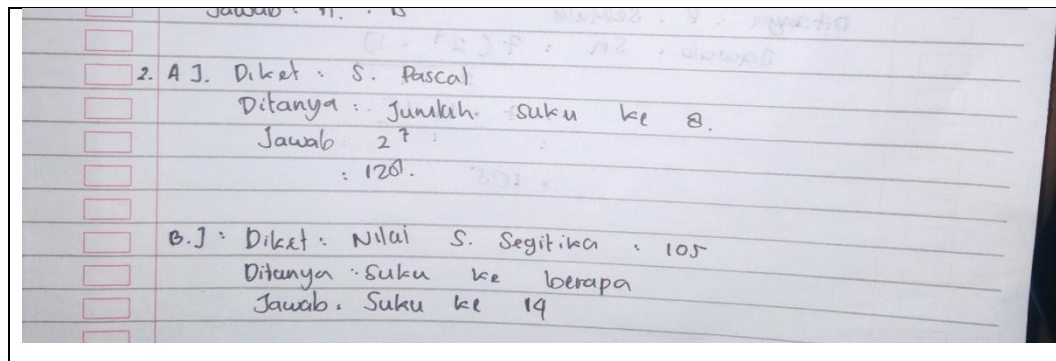 Jawab : n. . B
2. A]. Diket : S. Pascal
Ditanya : Jumlah. suku ke 8.
Jawab 2⁷ :
: 128.
B.] : Diket : Nilai S. Segitika : 105
Ditanya : Suku ke berapa
Jawab . Suku ke 14